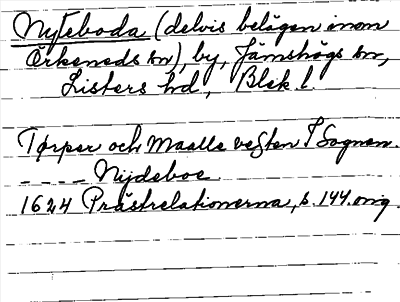 Nyteboda (delvis belägen inom
Örkeneds sn), by, Jämshögs sn,
Listers hd, Blek. l.
Tørper och Maalle vesten I Sognen.
---- Nydeboe
1624 Prästrelationerna, s. 144. orig.